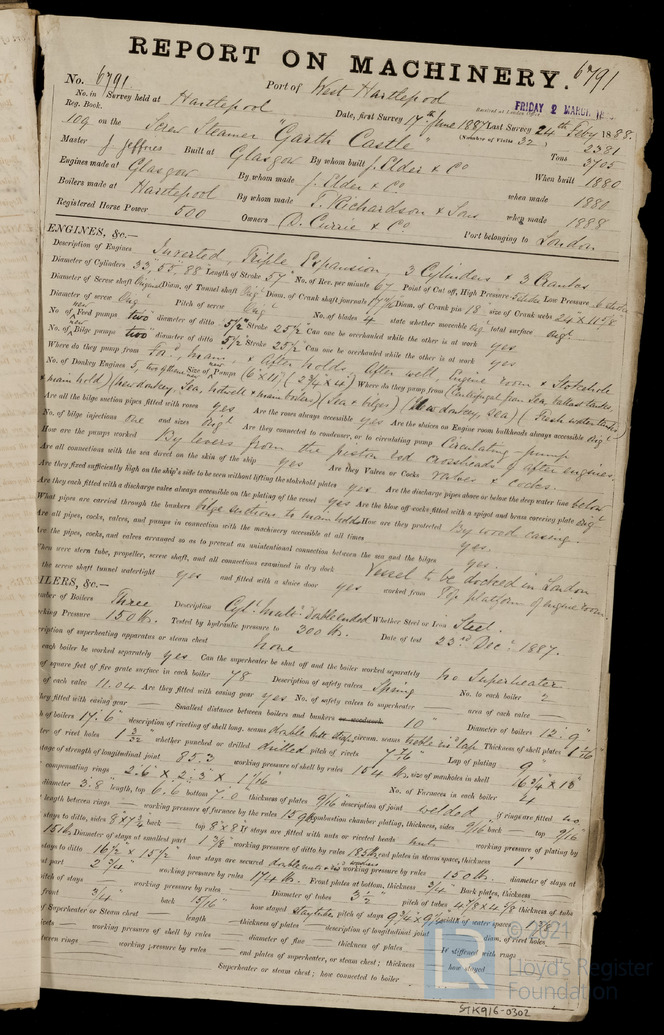 REPORT ON MACHINERY.
6791
No. 6791
Port of West Hartlepool
Received at London Office FRIDAY 2 MARCH 18
No. in Survey held at Hartlepool Date, first Survey 17th June 1887 Last Survey 24th Feby 1888
Reg. Book.
(Number of Visits 32)
109 on the Screw Steamer "Garth Castle" Tons 2381
3705
Master J. Jeffries Built at Glasgow By whom built J. Elder & Co When built 1880
Engines made at Glasgow By whom made J. Elder & Co when made 1880
Boilers made at Hartlepool By whom made T. Richardson & Sons when made 1888
Registered Horse Power 500 Owners D. Currie & Co Port belonging to London
ENGINES, &c.—
Description of Engines Inverted, Triple Expansion, 3 Cylinders & 3 Cranks
Diameter of Cylinders 33, 55, 88 Length of Stroke 57" No. of Rev. per minute 67 Point of Cut off, High Pressure Low Pressure
Diameter of Screw shaft Diam. of Tunnel shaft Diam. of Crank shaft journals Diam. of Crank pin 18 size of Crank webs 24" x 11 5/8"
Diameter of screw Pitch of screw No. of blades 4 state whether moveable total surface
No. of Feed pumps two diameter of ditto 5½" Stroke 25½" Can one be overhauled while the other is at work yes
No. of Bilge pumps two diameter of ditto 5½" Stroke 25½" Can one be overhauled while the other is at work yes
Where do they pump from For'd, main, & After holds, After well, Engine room & Stokehole
No. of Donkey Engines Size of Pumps (6" x 11") (2¾" x 4") Where do they pump from (Centrifugal from Sea, ballast tanks,
& main hold) (new donkey, Sea, hotwell & main boilers) (Sea & bilges) (New donkey, Sea) (Fresh water tanks)
Are all the bilge suction pipes fitted with roses yes Are the roses always accessible yes Are the sluices on Engine room bulkheads always accessible
No. of bilge injections one and sizes Are they connected to condenser, or to circulating pump Circulating pump
How are the pumps worked By levers from the piston rod crossheads of after engines.
Are all connections with the sea direct on the skin of the ship yes Are they Valves or Cocks valves & cocks.
Are they fixed sufficiently high on the ship's side to be seen without lifting the stokehold plates yes Are the discharge pipes above or below the deep water line below
Are they each fitted with a discharge valve always accessible on the plating of the vessel yes Are the blow off cocks fitted with a spigot and brass covering plate
What pipes are carried through the bunkers bilge suctions to main holds How are they protected By wood casing.
Are all pipes, cocks, valves, and pumps in connection with the machinery accessible at all times yes.
Are the pipes, cocks, and valves arranged so as to prevent an unintentional connection between the sea and the bilges yes.
When were stern tube, propeller, screw shaft, and all connections examined in dry dock Vessel to be docked in London
the screw shaft tunnel watertight yes and fitted with a sluice door yes worked from Top platform of engine room.
ILERS, &c.—
Number of Boilers Three Description Cyl. Double ended Whether Steel or Iron Steel.
rking Pressure 150 lbs. Tested by hydraulic pressure to 300 lbs. Date of test 23rd Decr. 1887.
cription of superheating apparatus or steam chest none
each boiler be worked separately yes Can the superheater be shut off and the boiler worked separately no Superheater
of square feet of fire grate surface in each boiler 78 Description of safety valves Spring No. to each boiler 2
of each valve 11.04 Are they fitted with easing gear yes No. of safety valves to superheater — area of each valve —
they fitted with easing gear — Smallest distance between boilers and bunkers or woodwork 10" Diameter of boilers 12' 9"
h of boilers 17' 6" description of riveting of shell long. seams double butt strap circum. seams treble riv. lap Thickness of shell plates
ter of rivet holes 1 3/32" whether punched or drilled drilled pitch of rivets 7 7/16" Lap of plating 9"
ntage of strength of longitudinal joint 85.3 working pressure of shell by rules 154 lbs. size of manholes in shell 16¾" x 13"
compensating rings 2' 6" x 2' 3" x 1 1/16" No. of Furnaces in each boiler 4
diameter 3' 8" length, top 6' 6" bottom 7' 0" thickness of plates 9/16" description of joint welded if rings are fitted no
length between rings — working pressure of furnace by the rules combustion chamber plating, thickness, sides 9/16" back — top 9/16"
stays to ditto, sides 8" x 7¾" back — top 8" x 8" If stays are fitted with nuts or riveted heads nuts working pressure of plating by
151 lbs Diameter of stays at smallest part 1 3/8" working pressure of ditto by rules end plates in steam space, thickness 1"
stays to ditto 16½" x 15½" how stays are secured double nuts & washers working pressure by rules 150 lbs. diameter of stays at
st part 2¾" working pressure by rules 174 lbs. Front plates at bottom, thickness ¾" Back plates, thickness —
pitch of stays — working pressure by rules — Diameter of tubes 3½" pitch of tubes 4 7/8" x 4 5/8" thickness of tube
front ¾" back 13/16" how stayed Stay tubes pitch of stays 9¾" x 9¼" width of water spaces
of Superheater or Steam chest — length — description of longitudinal joint — diam. of rivet holes
vets — working pressure of shell by rules — thickness of plates — If stiffened with rings
diameter of flue — thickness of plates — how stayed
ween rings — working pressure by rules — end plates of superheater, or steam chest; thickness
Superheater or steam chest; how connected to boiler
© 2021
LR Lloyd's Register
Foundation
STK916-0302